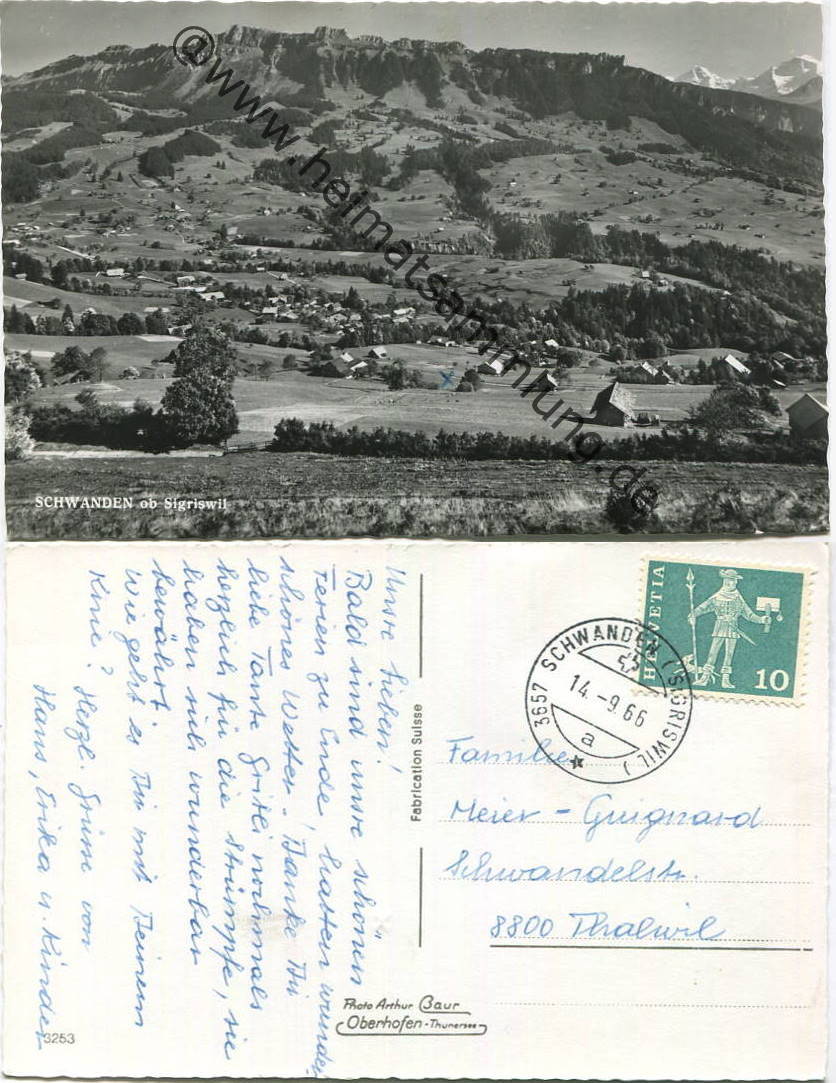 @www.heimatsammlung.de
SCHWANDEN ob Sigriswil
Unsre Lieben!
Bald sind unsre schönen
Ferien zu Ende, hatten wunder
schönes Wetter. Danke Dir
liebe Tante Gritli nochmals
herzlich für die Strümpfe, sie
haben sich wunderbar
bewährt.
Wie geht es Dir mit Deinem
Knie? Herzl. Grüsse von
Hans, Erika u. Kinder
3253
Fabrication Suisse
Photo Arthur Baur
Oberhofen-Thunersee
HELVETIA
10
3657 SCHWANDEN (SIGRISWIL)
14.-9.66
a
Familie
Meier - Guignard
Schwandelstr.
8800 Thalwil